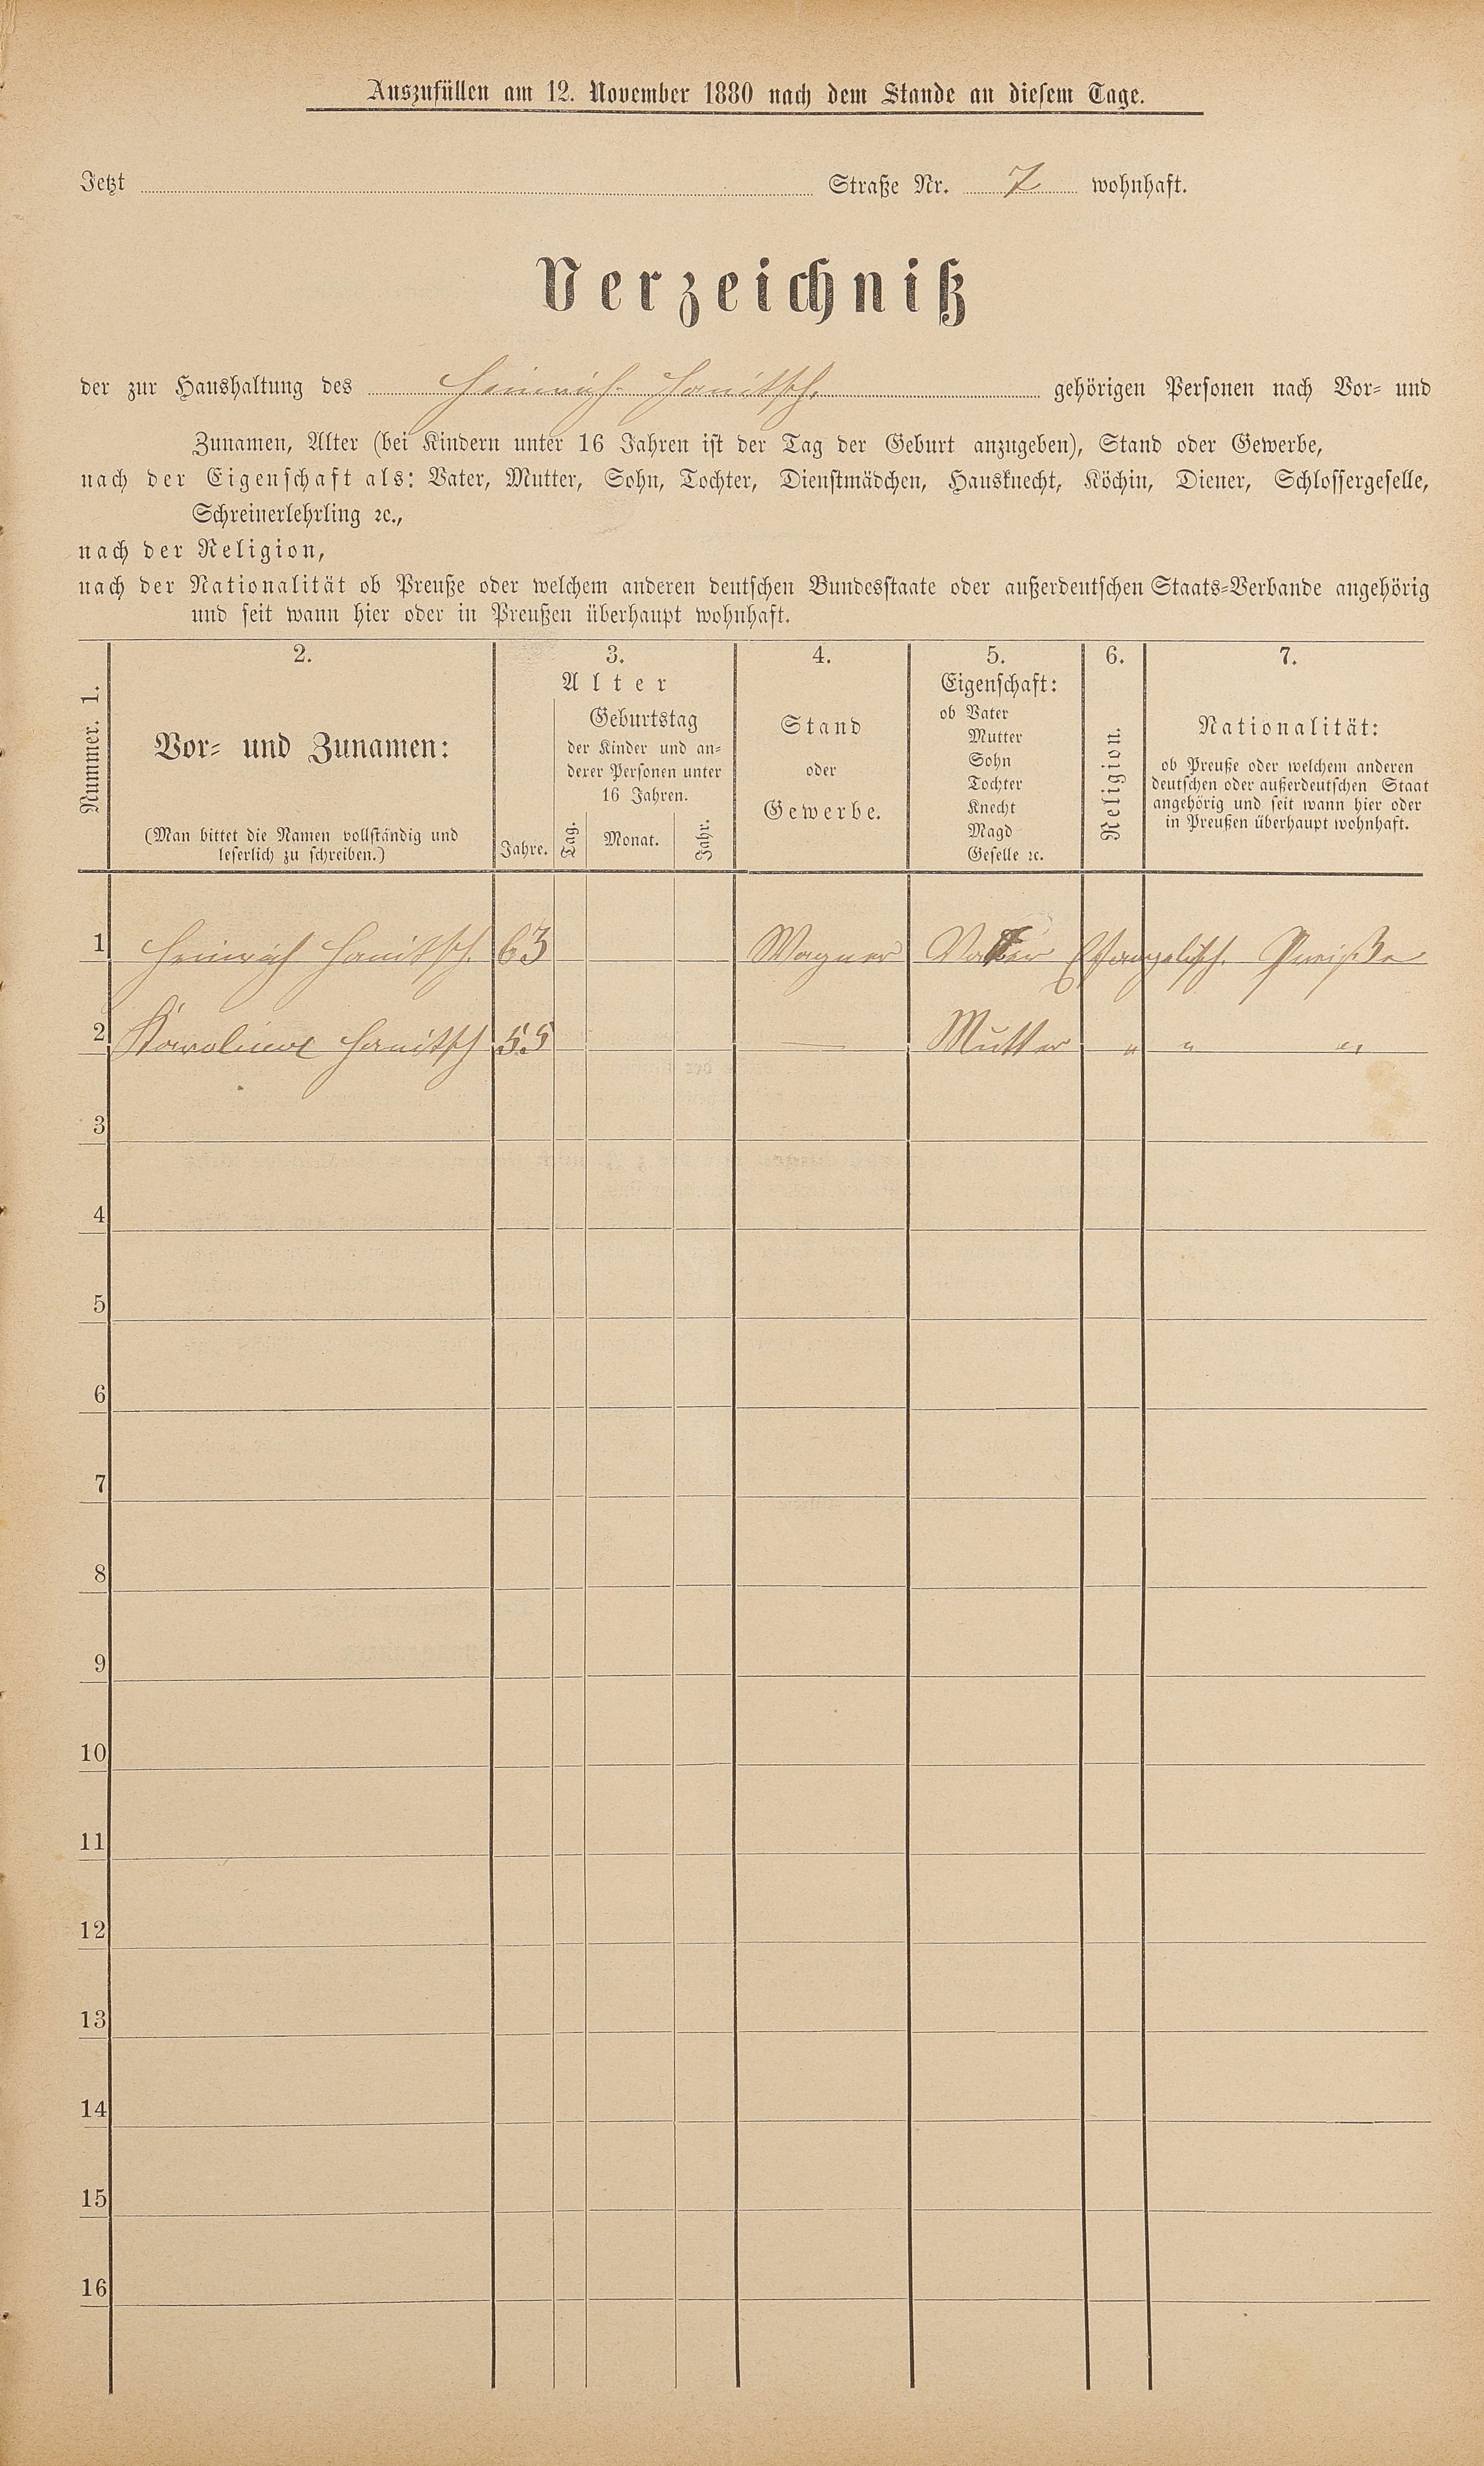 Auszufüllen am 12. November 1880 nach dem Stande an diesem Tage.
Jetzt Straße Nr. 7 wohnhaft.
Verzeichniß
der zur Haushaltung des Heinrich Hanitsch. gehörigen Personen nach Vor- und
Zunamen, Alter (bei Kindern unter 16 Jahren ist der Tag der Geburt anzugeben), Stand oder Gewerbe,
nach der Eigenschaft als: Vater, Mutter, Sohn, Tochter, Dienstmädchen, Hausknecht, Köchin, Diener, Schlossergeselle,
Schreinerlehrling ꝛc.,
nach der Religion,
nach der Nationalität ob Preuße oder welchem anderen deutschen Bundesstaate oder außerdeutschen Staats-Verbande angehörig
und seit wann hier oder in Preußen überhaupt wohnhaft.
Nummer. 1.
2.
Vor- und Zunamen:
(Man bittet die Namen vollständig und
leserlich zu schreiben.)
3.
Alter
Jahre.
Geburtstag
der Kinder und an-
derer Personen unter
16 Jahren.
Tag. Monat. Jahr.
4.
Stand
oder
Gewerbe.
5.
Eigenschaft:
ob Vater
Mutter
Sohn
Tochter
Knecht
Magd
Geselle ꝛc.
6.
Religion.
7.
Nationalität:
ob Preuße oder welchem anderen
deutschen oder außerdeutschen Staat
angehörig und seit wann hier oder
in Preußen überhaupt wohnhaft.
1 Heinrich Hanitsch. 63 Wagner Vater Efangelisch. Preiße
2 Karoline Hanitsch 55 — Mutter " " "
3
4
5
6
7
8
9
10
11
12
13
14
15
16